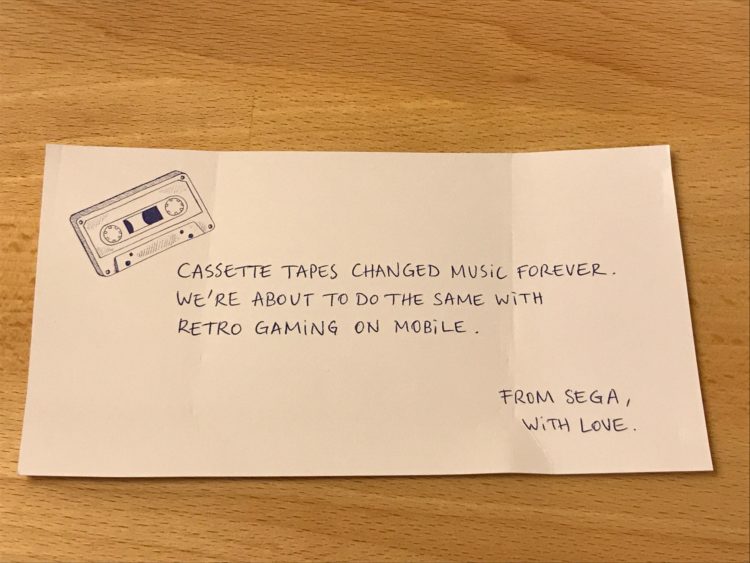 CASSETTE TAPES CHANGED MUSIC FOREVER.
WE'RE ABOUT TO DO THE SAME WITH
RETRO GAMING ON MOBILE.
FROM SEGA,
WITH LOVE.